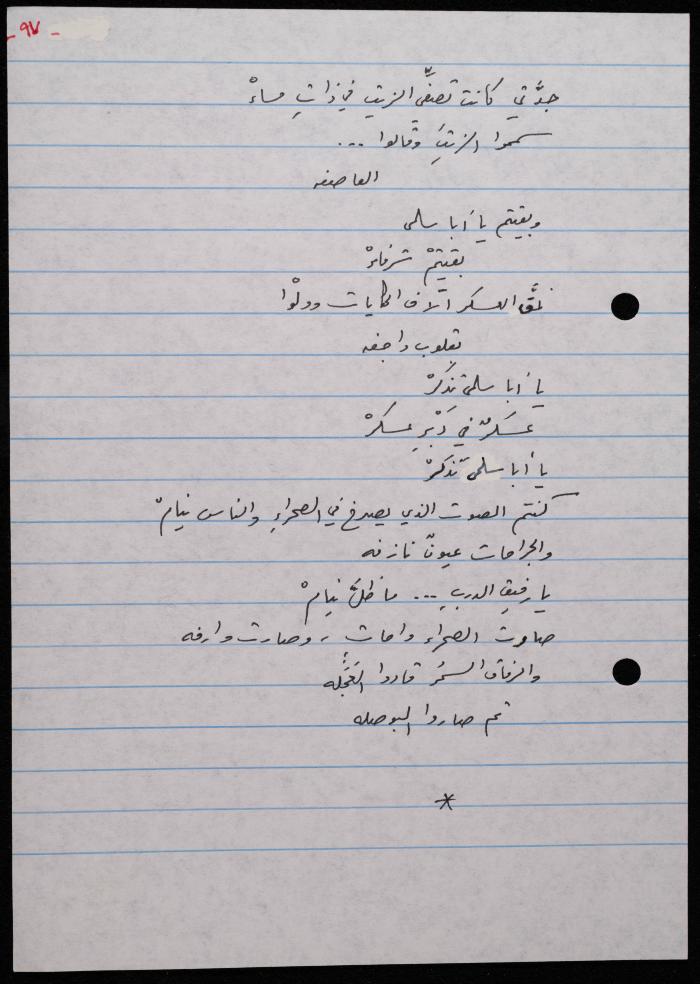 - ٩٧ -
جدَّتي كانت تصفّي الزيتِ في ذاتِ مساءْ
سمموا الزيتَ وقالوا ...
العاصفه
وبقيتم يا أبا سلمى
بقيتمْ شرفاءْ
لفَّق العسكر آلاف الحكايات وولّوا
بقلوب واجفه
يا أبا سلمى تذكرْ
عسكرٌ في دَبْرِ عسكرْ
يا أبا سلمى تذكرْ
كنتم الصوت الذي يصرخ في الصحراءِ والناس نيامْ
والجراحات عيونٌ نازفه
يا رفيق الدربِ ... ما ظلَّ نيامْ
صارت الصحراء واحات ، وصارت وارفه
والرفاق السمْرُ قادوا العَجَله
ثم صاروا البوصله
*